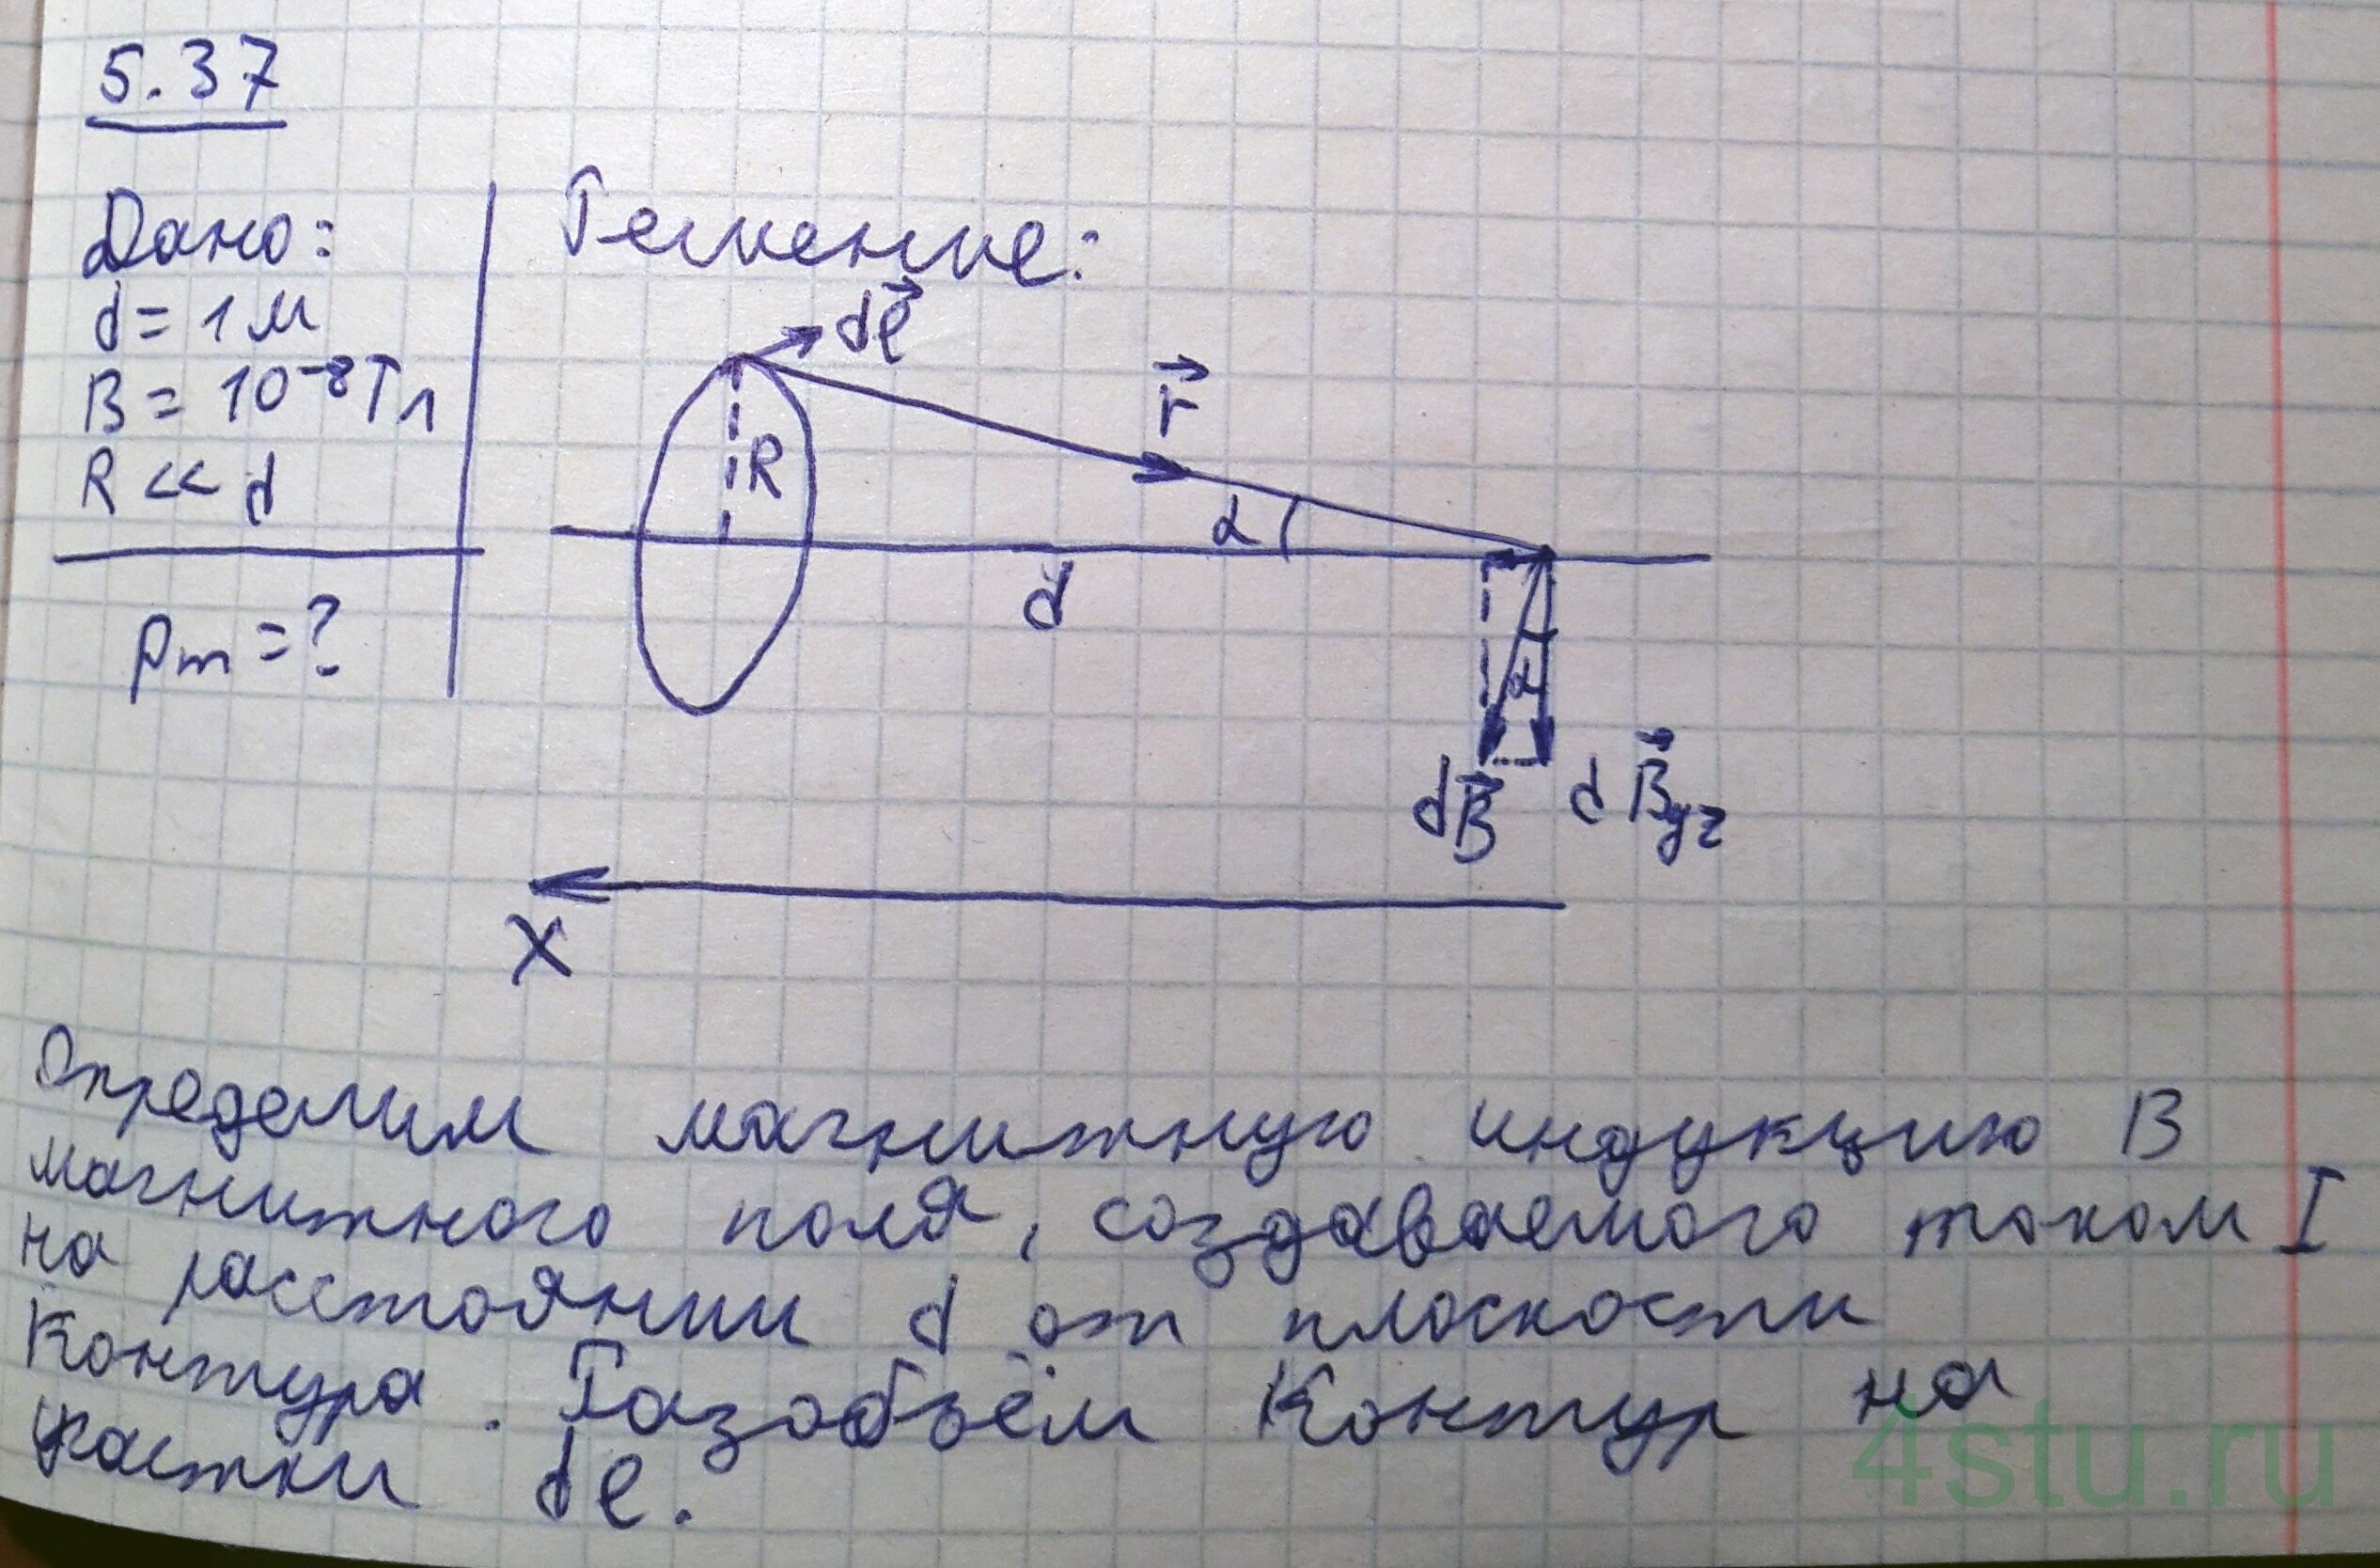 5.37
Дано:
d = 1 м
B = 10⁻⁸ Тл
R << d
pm = ?
Решение:
dl⃗
r⃗
R
α
d
α
dB⃗
dB⃗yz
X
Определим магнитную индукцию B
магнитного поля, создаваемого током I
на расстоянии d от плоскости
контура. Разобьём контур на
участки dl.
4stu.ru